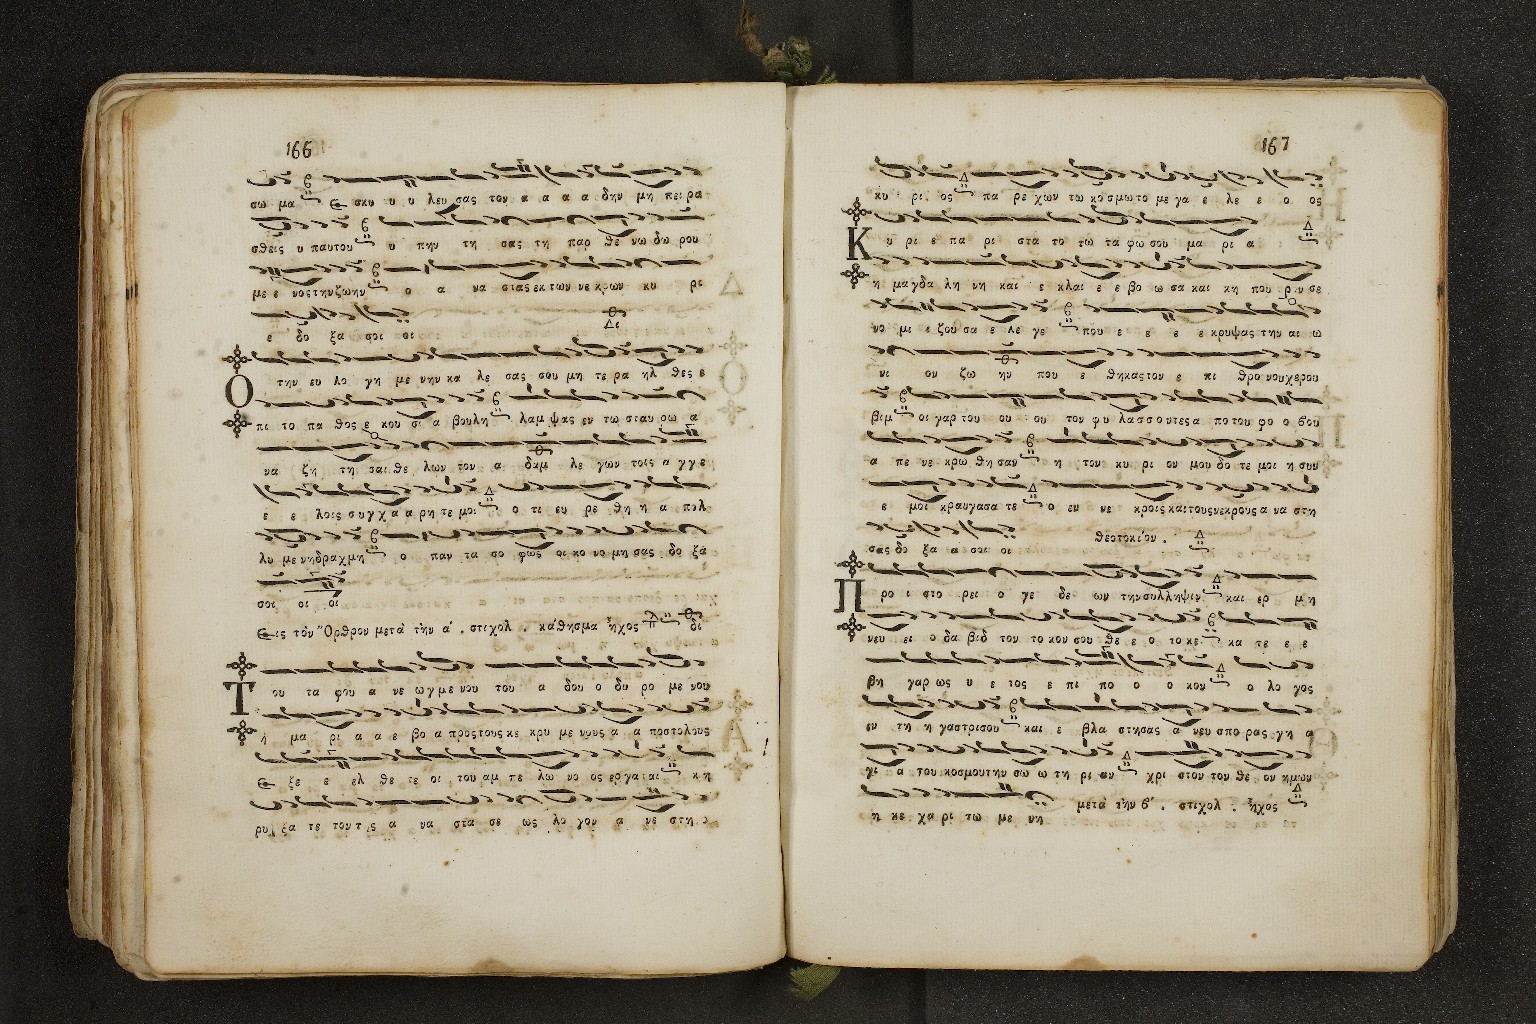 166
σω μα ε σκυ υ υ λευ σας τον α α α α δην μη πει ρα
σθεις υ παυτου υ πην τη σας τη παρ θε νω δω ρου
με ε νος την ζωην ο α να στας εκ των νε κρων κυ ρι
ε δο ξα σοι οι
Ο την ευ λο γη με νην κα λε σας σου μη τε ρα ηλ θες ε
πι το πα θος ε κου σι α βουλη λαμ ψας εν τω σταυ ρω α
να ζη τη σαι θε λων τον α δαμ λε γων τοις α γγε
ε ε λοις συγχα α ρη τε μοι ο τι ευ ρε θη η α πολ
λυ με νη δραχμη ο παν τα σο φως οι κο νο μη σας δο ξα
σοι οι οι
Εις τὸν Ὄρθρον μετὰ τὴν α΄. στιχολ. κάθησμα ἦχος δι
Τ ου τα φου α νε ωγ με νου του α δου ο δυ ρο με νου
ή μα ρι α α ε βο α προς τους κε κρυ με νους α α ποστολους
Ε ξε ε ελ θε τε οι του αμ πε λω νο ος εργαται κη
ρυ ξα τε τον της α να στα σε ως λο γον α νε στη ο
167
κυ ρι ος πα ρε χων τω κοσμω το με γα ε λε ε ο ος
Κ υ ρι ε πα ρι στα το τω τα φω σου μα ρι α
η μαγδα λη νη και ε κλαι ε ε βο ω σα και κη που ρυ σε
νο μι ε ζου σα ε λε γε που ε ε ε ε κρυψας την αι ω
νι ον ζω ην που ε θηκας τον ε πι θρο νου χερου
βιμ οι γαρ του ου του τον φυ λασσοντες α πο του φο ο βου
α πε νε κρω θη σαν η τον κυ ρι ον μου δο τε μοι η συν
ε μοι κραυγασα τε ο εν νε κροις και τους νεκρους α να στη
σας δο ξα α σοι οι θεοτοκίον.
Π ρο ι στο ρει ο γε δε ων την συλληψιν και ερ μη
νευ ει ο δα βιδ τον το κον σου θε ε ο το κε κα τε ε ε
βη γαρ ως υ ε τος ε πι πο ο ο κον ο λο γος
εν τη η γαστρι σου και ε βλα στησας α νευ σπο ρας γη α
γι α του κοσμου την σω ω τη ρι αν χρι στον τον θε ον ημων
η κε χα ρι τω με νη μετὰ τὴν β΄. στιχολ. ἦχος